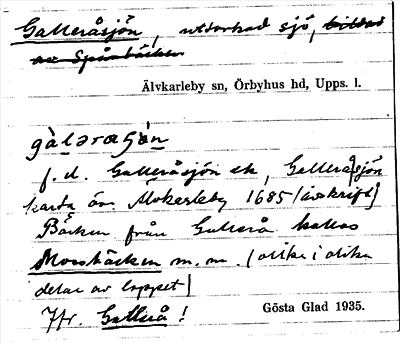 Galleråsjön, uttorkad sjö, bildad
av Spånbäcken
Älvkarleby sn, Örbyhus hd, Upps. l.
gàlǝraʃǿn
f. d. Galleråsjön ek, Gallerå[sjön
karta öv. Älvkarleby 1685 (avskrift)
Bäcken från Gallerå kallas
Mossbäcken m. m. (olika i olika
delar av loppet)
Jfr. Gallerå!
Gösta Glad 1935.